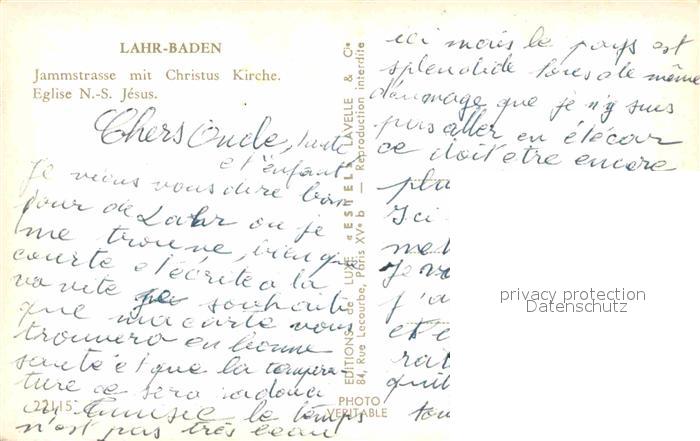 LAHR-BADEN
Jammstrasse mit Christus Kirche.
Eglise N.-S. Jésus.
Chers Oncle, tante
et enfant
Je viens vous dire bon
jour de Lahr ou je
me trouve, bien que
courte et écrite a la
va vite je souhaite
que ma carte vous
trouvera en bonne
santé et que la tempéra-
ture ce sera radouci
en Tunisie le temps
n'est pas très beau
22115
PHOTO
VERITABLE
EDITIONS de LUXE « ESTEL » LAVELLE & Cie
84, Rue Lecourbe, Paris XVe - Reproduction interdite
ici mais le pays est
splendide tores de même
dommage que je n'y suis
pas aller en été car
ce doit etre encore
plu
Ici
me
Je v
j'a
et e
rai
quit
tou
privacy protection
Datenschutz